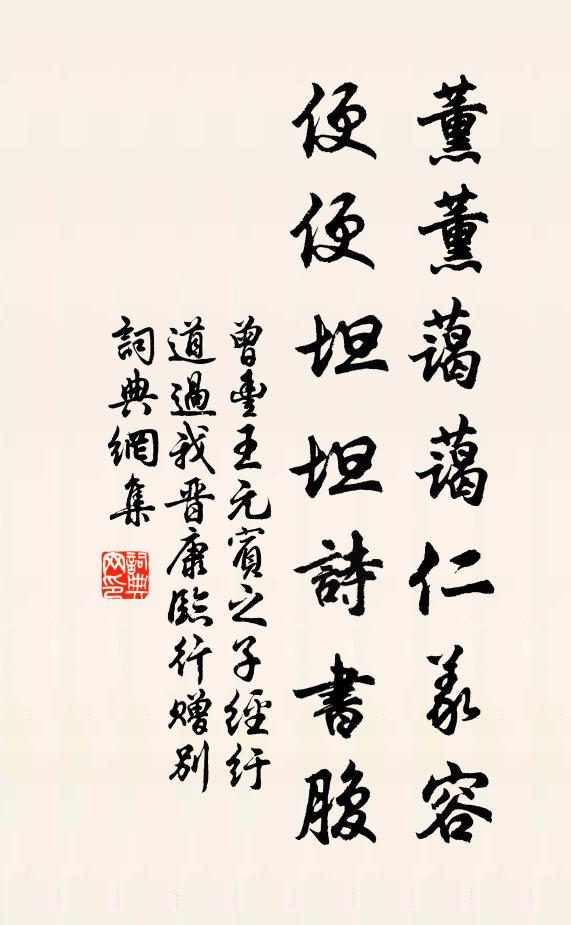 薰薰藹藹仁義容
便便坦坦詩書腹
曾豐王元賓之子經紆
道過我晉康臨行贈別
詞典網集
詞典網印